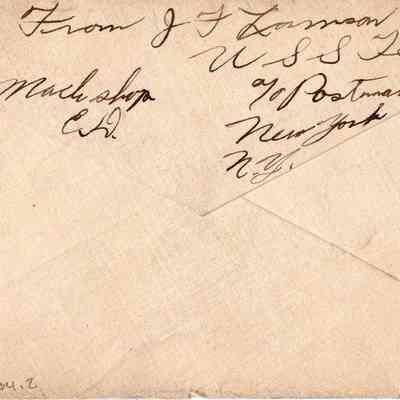 From J F Lamson
U S S Te
Mach shop
E.D.
% Postmas
New York
N.Y.
04.2